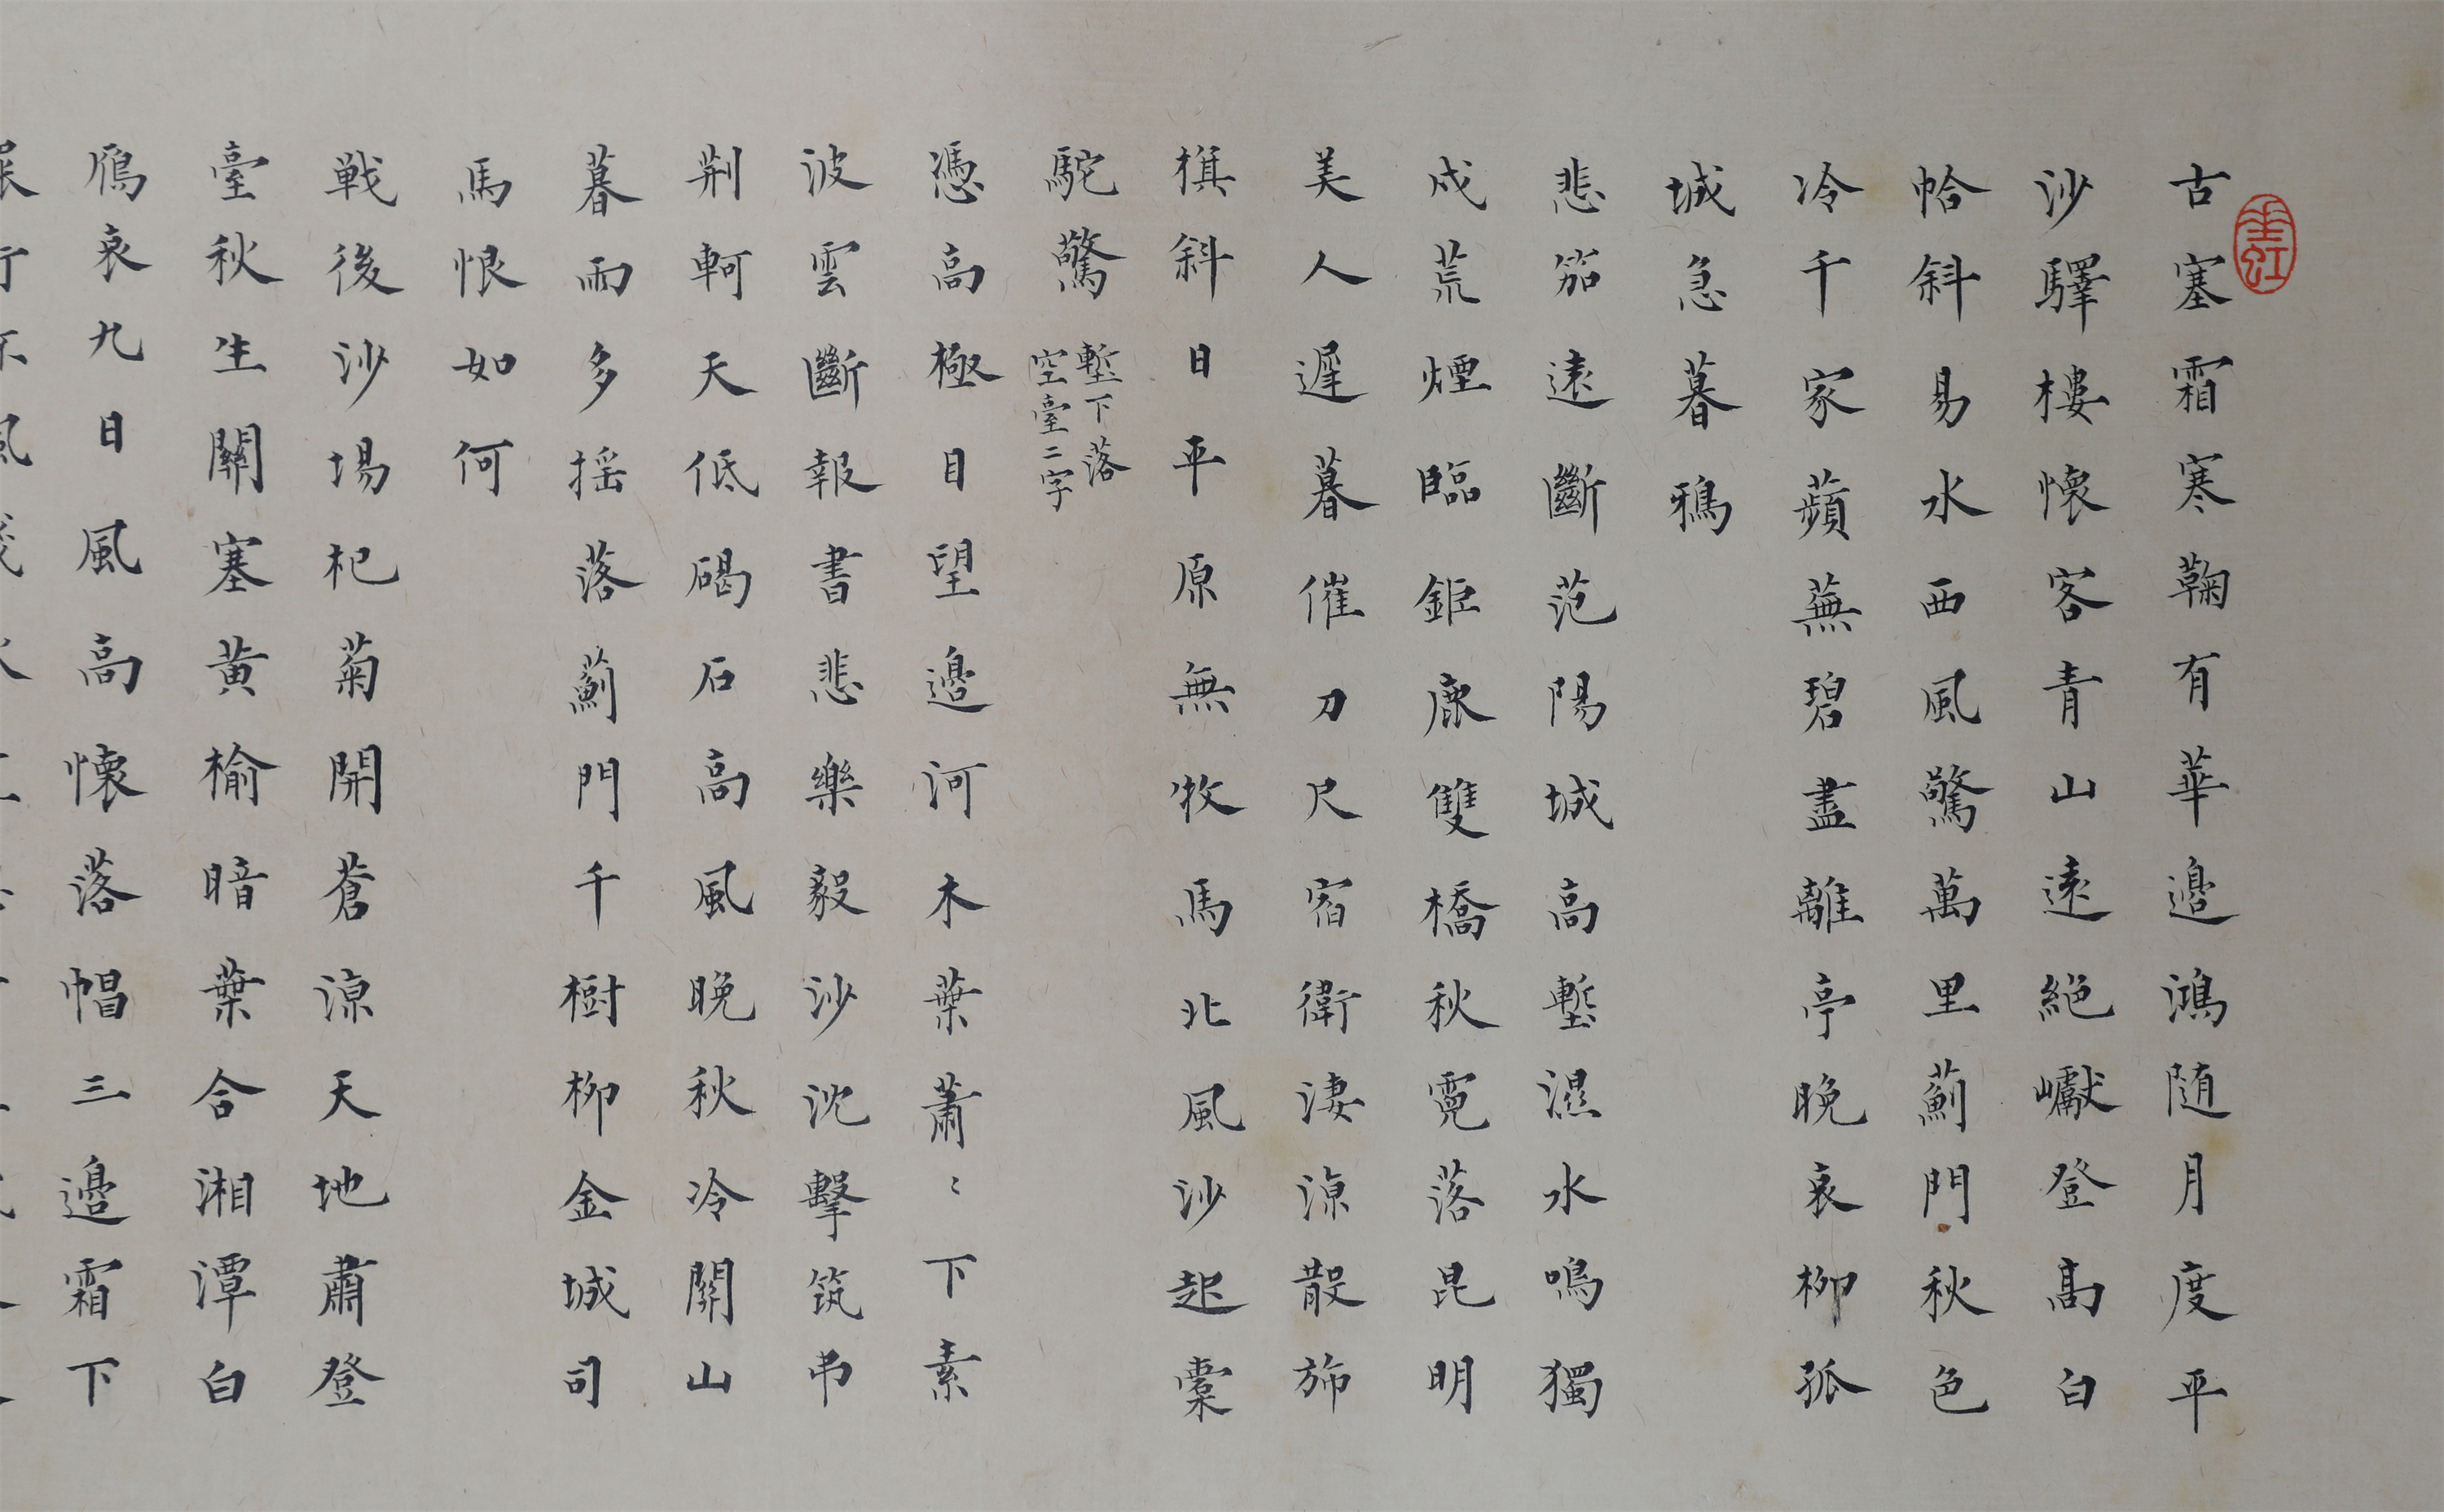 古塞霜寒鞠有華邉鴻随月度平
沙驛樓懷客青山遠絕巘登高白
帢斜易水西風驚萬里薊門秋色
冷千家蘋蕪碧盡離亭晚哀柳孤
城急暮鴉
悲笳遠斷范陽城高塹濕水鳴獨
戍荒煙臨鉅鹿雙橋秋霓落昆明
美人遲暮催刀尺宿衛淒涼散斾
旗斜日平原無牧馬北風沙起橐
駝驚 塹下落空臺二字
憑高極目望邉河木葉蕭〻下素
波雲斷報書悲樂毅沙沈擊筑弔
荆軻天低碣石高風晚秋冷關山
暮雨多揺落薊門千樹柳金城司
馬恨如何
戦後沙場杞菊開蒼涼天地肅登
臺秋生關塞黄榆暗葉合湘潭白
鴈哀九日風高懷落帽三邉霜下